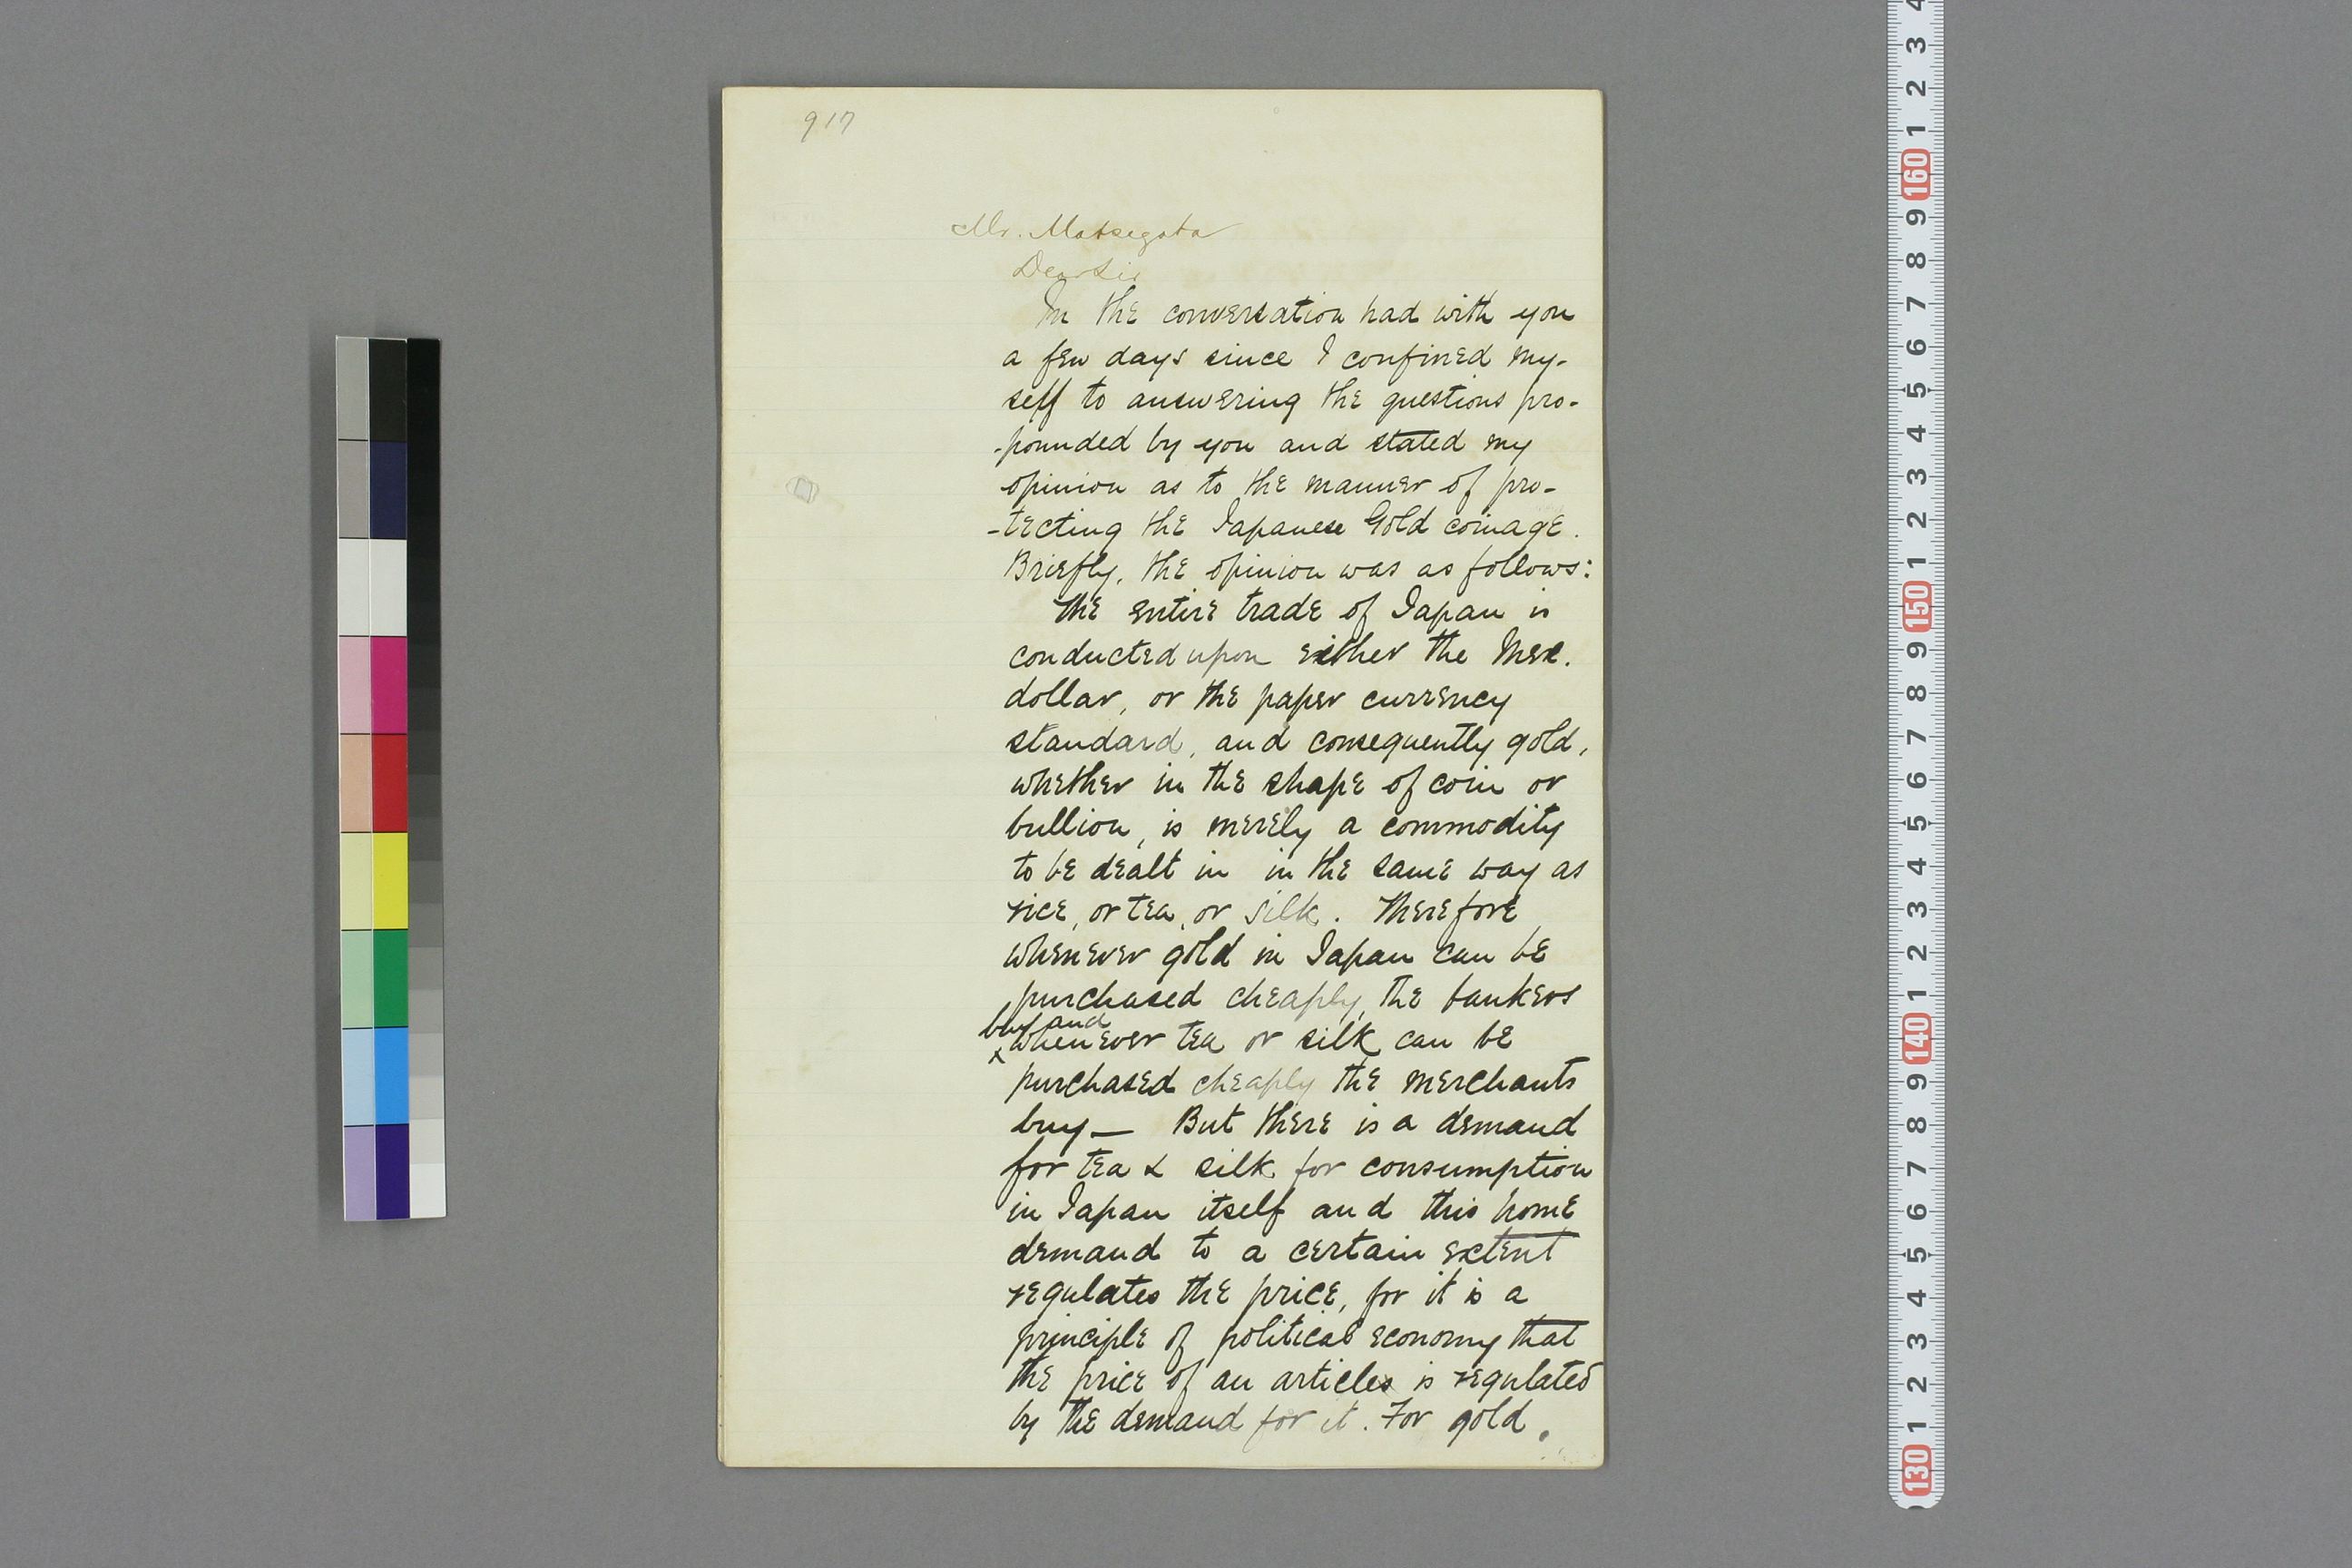 917
Mr. Matsegata
Dear Sir
In the conversation had with you
a few days since I confined my-
self to answering the questions pro-
-pounded by you and stated my
opinion as to the manner of pro-
-tecting the Japanese Gold coinage.
Briefly, the opinion was as follows:
The entire trade of Japan is
conducted upon either the Mex.
dollar, or the paper currency
standard, and consequently gold,
whether in the shape of coin or
bullion, is merely a commodity
to be dealt in in the same way as
rice, or tea, or silk. Therefore
whenever gold in Japan can be
purchased cheaply, the bankers
buy and
x whenever tea or silk can be
purchased cheaply the merchants
buy — But there is a demand
for tea & silk for consumption
in Japan itself and this home
demand to a certain extent
regulates the price, for it is a
principle of political economy that
the price of an articles is regulated
by the demand for it. For gold,
4
3
2
1
160
9
8
7
6
5
4
3
2
1
150
9
8
7
6
5
4
3
2
1
140
9
8
7
6
5
4
3
2
1
130